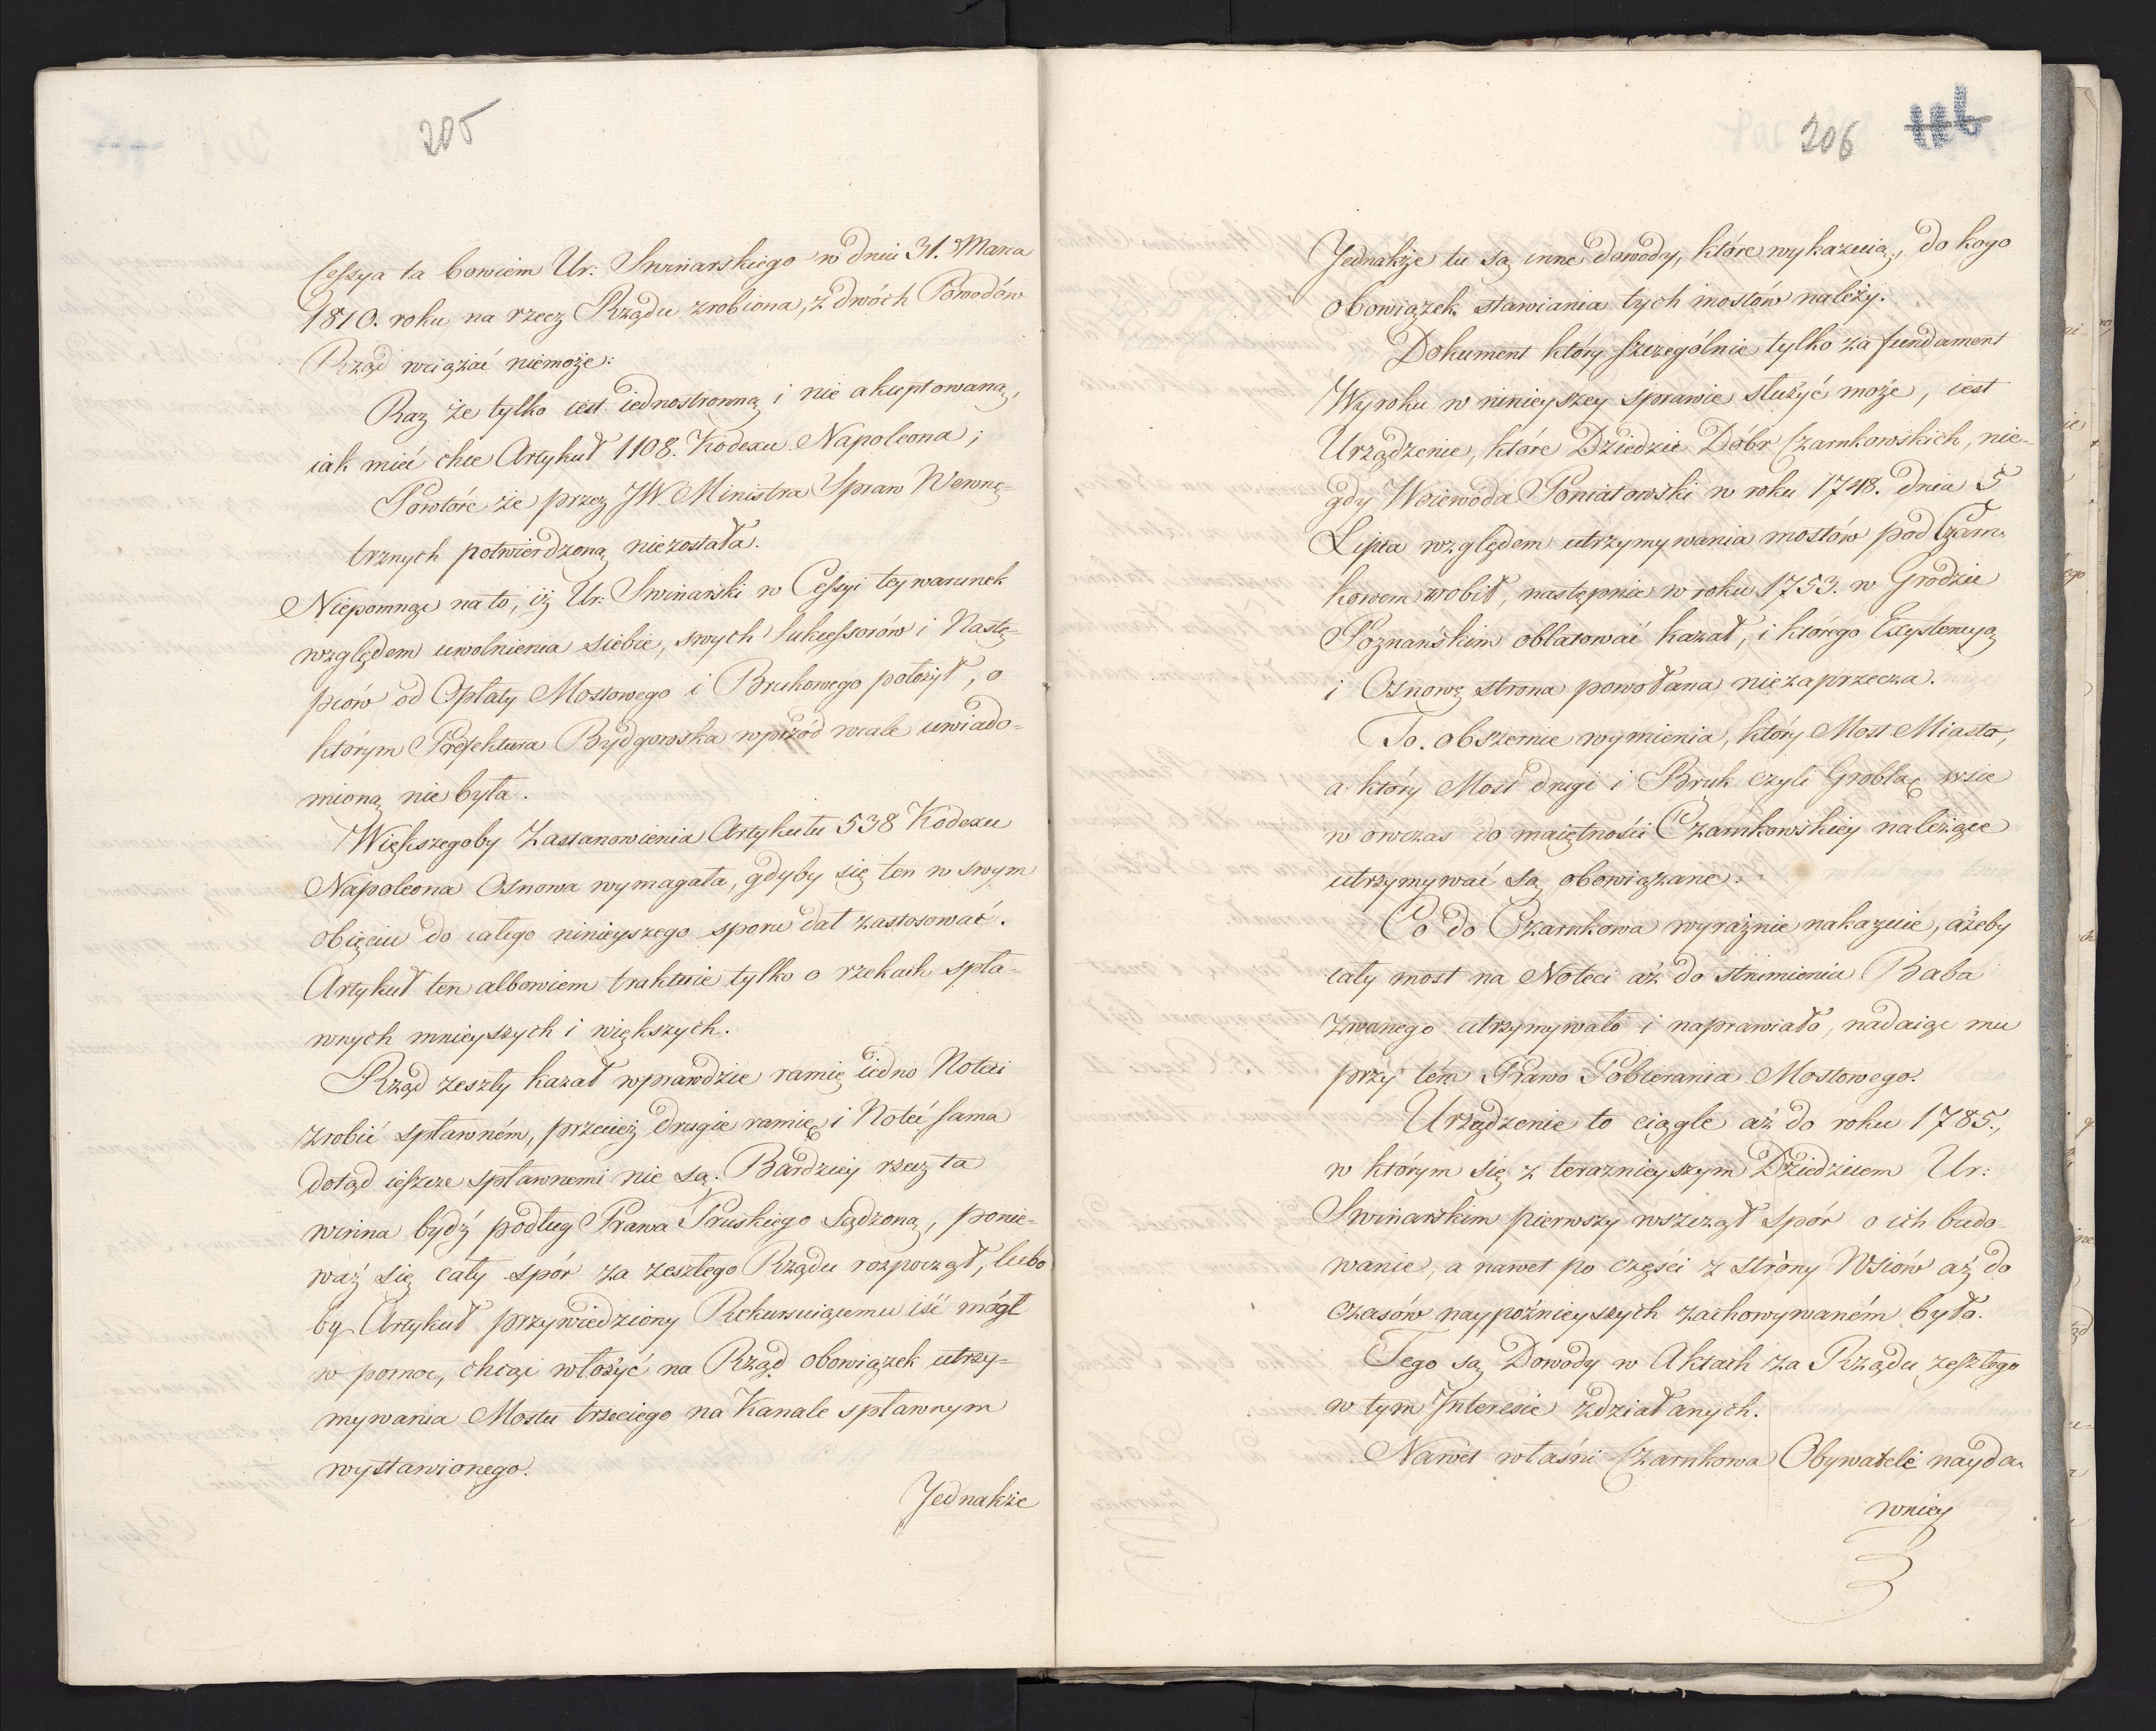 205
Cessya ta bowiem Ur: Swinarskiego w dniu 31. Marca
1810. roku na rzecz Rządu zrobiona, z dwóch Powodów
Rząd wiązać niemoże:
Raz że tylko iest iednostronną i nie akceptowaną,
iak mieć chce Artykuł 1108. Kodexu Napoleona;
Powtóre że przez JW. Ministra Spraw Wewnę-
trznych potwierdzoną niezostała.
Niepomnąc na to, iż Ur: Swinarski w Cessyi tey warunek
względem uwolnienia siebie, swych Sukcessorów i Nastę-
pców od Opłaty Mostowego i Brukowego położył, o
którym Prefektura Bydgowska wprzód wcale uwiado-
mioną nie była.
Większegoby Zastanowienia Artykułu 538 Kodexu
Napoleona Osnowa wymagała, gdyby się ten w swym
obięciu do całego ninieyszego sporu dał zastosować.
Artykuł ten albowiem traktuie tylko o rzekach spła-
wnych mnieyszych i większych.
Rząd zeszły kazał wprawdzie ramię iedno Noteci
zrobić spławném, przecież drugie ramię i Noteć sama
dotąd ieszcze spławnemi nie są. Bardziey rzecz ta
winna bydź podług Prawa Pruskiego Sądzoną, ponie-
waż się cały spór za zeszłego Rządu rozpoczął, lubo
by Artykuł przywiedziony Rekursuiącemu iść mógł
w pomoc, chcąc włożyć na Rząd obowiązek utrzy-
mywania Mostu trzeciego na Kanale spławnym
wystawionego.
Jednakże
206
Jednakże tu są inne dowody, które wykazuią, do kogo
obowiązek stawiania tych mostów należy.
Dokument który szczególnie tylko za fundament
Wyroku w ninieyszey sprawie służyć może, iest
Urządzenie, które Dziedzic Dóbr Czarnkowskich, nie-
gdy Woiewoda Poniatowski w roku 1748. dnia 5
Lipca względem utrzymywania mostów pod Czarn-
kowem zrobił, następnie w roku 1753. w Grodzie
Poznańskim oblatować kazał, i którego Exystencyą
i Osnowę strona powołana niezaprzecza.
To. obszernie wymienia, który Most Miasto,
a który Most drugi i Bruk czyli Groblą wsie
w owczas do maiętności Czarnkowskiey należące
utrzymywać są obowiązane.
Co do Czarnkowa wyraźnie nakazuie, ażeby
cały most na Noteci aż do strumienia Baba
zwanego utrzymywało i naprawiało, nadaiąc mu
przy tém Prawo Pobierania Mostowego.
Urządzenie to ciągle aż do roku 1785.,
w którym się z teraznieyszym Dziedzicem Ur:
Swinarskim pierwszy wszczął spór o ich budo-
wanie, a nawet po części z strony Wsiów aż do
czasów naypoźnieyszych zachowywaném było.
Tego są Dowody w Aktach za Rządu zeszłego
w tym Interesie zdziałanych.
Nawet właśni Czarnkowa Obywatele nayda-
wniey